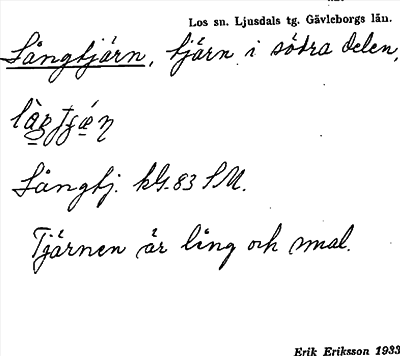 Los sn. Ljusdals tg. Gävleborgs län.
Långtjärn, tjärn i södra delen,
Långtj. kbl. 83 SM.
Tjärnen är lång och smal.
Erik Eriksson 1933